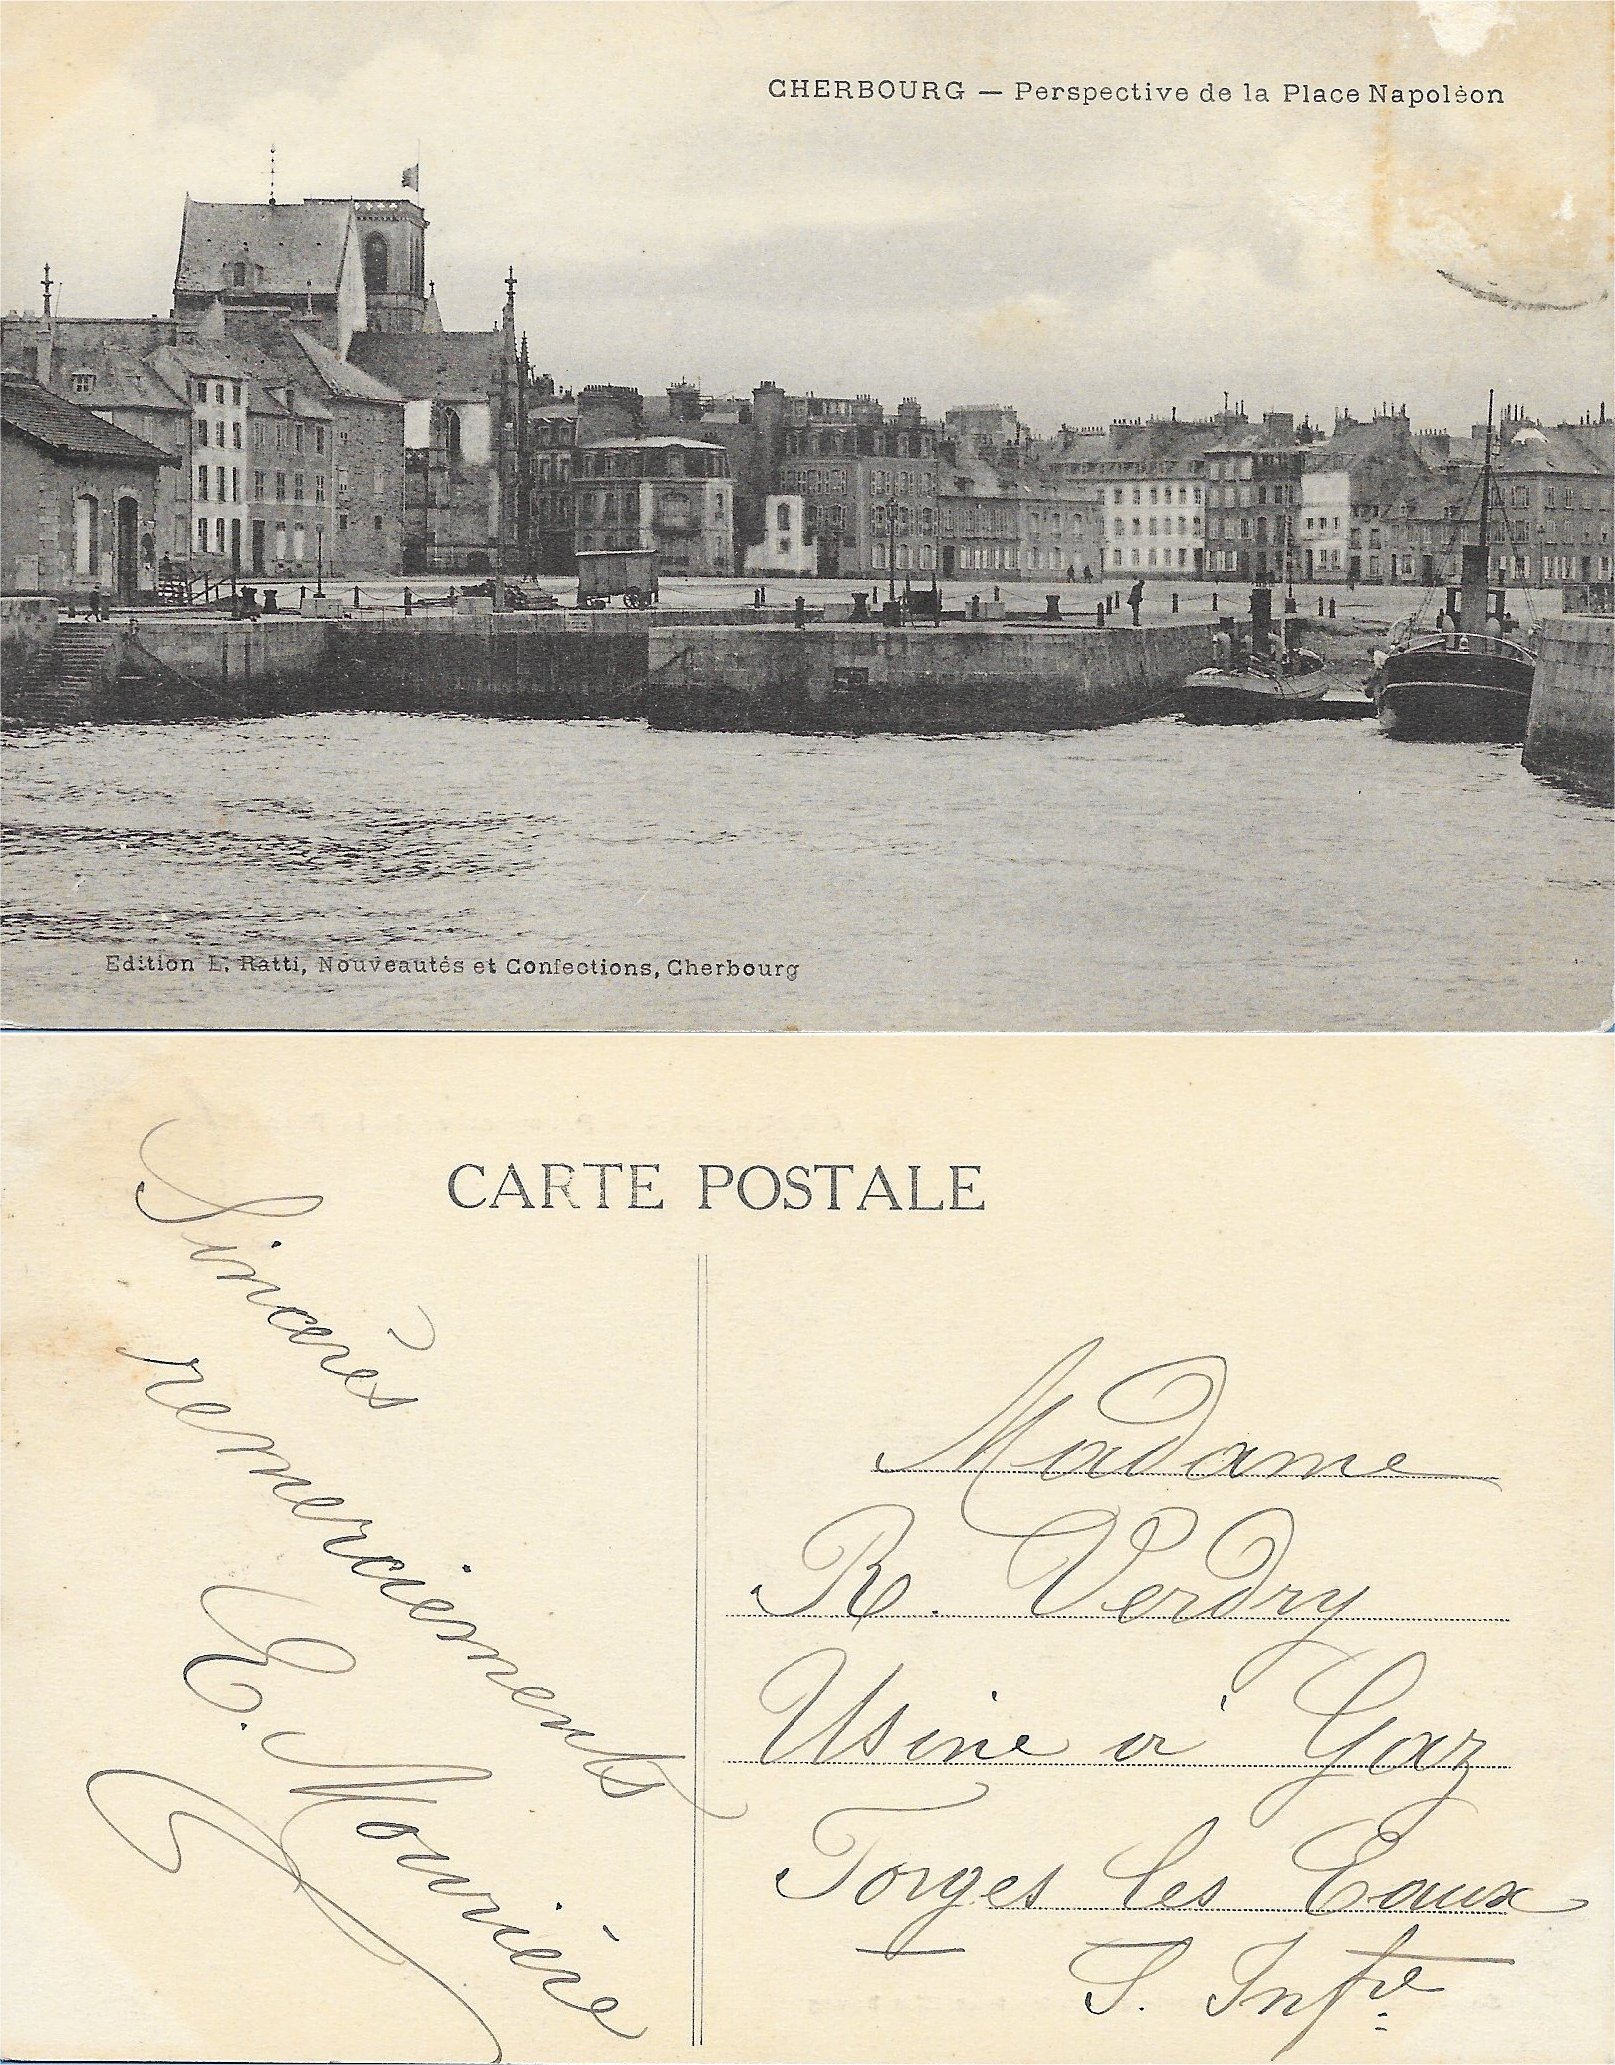 CHERBOURG — Perspective de la Place Napoléon
Edition L. Ratti, Nouveautés et Confections, Cherbourg
CARTE POSTALE
Sincères
remerciements
E. Mourière
Madame
R. Verdry
Usine à Gaz
Forges les Eaux
S. Infre